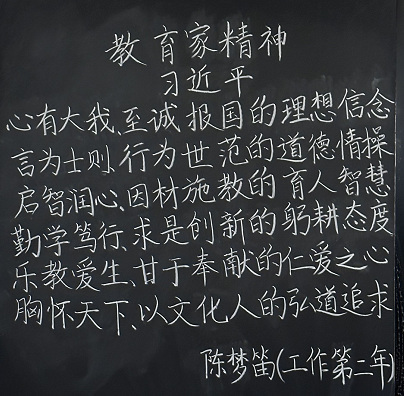 教育家精神
习近平
心有大我、至诚报国的理想信念
言为士则、行为世范的道德情操
启智润心、因材施教的育人智慧
勤学笃行、求是创新的躬耕态度
乐教爱生、甘于奉献的仁爱之心
胸怀天下、以文化人的弘道追求
陈梦笛(工作第二年)